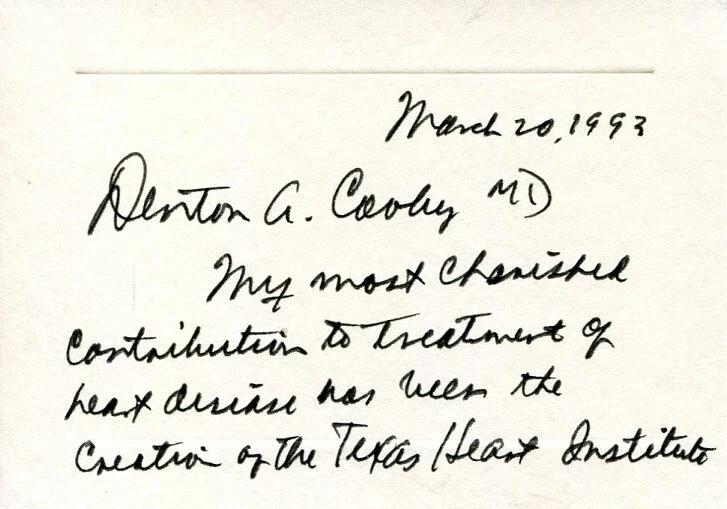 March 20, 1993
Denton A. Cooley MD
My most cherished
contribution to treatment of
heart disease has been the
creation of the Texas Heart Institute